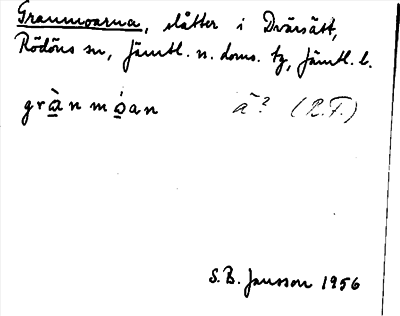 Granmoarna, slåtter i Dvärsätt,
Rödöns sn, Jämtl. n. doms. tg, Jämtl. l.
grà̱nmó̱an ā? (R.F.)
S.B. Jansson 1956